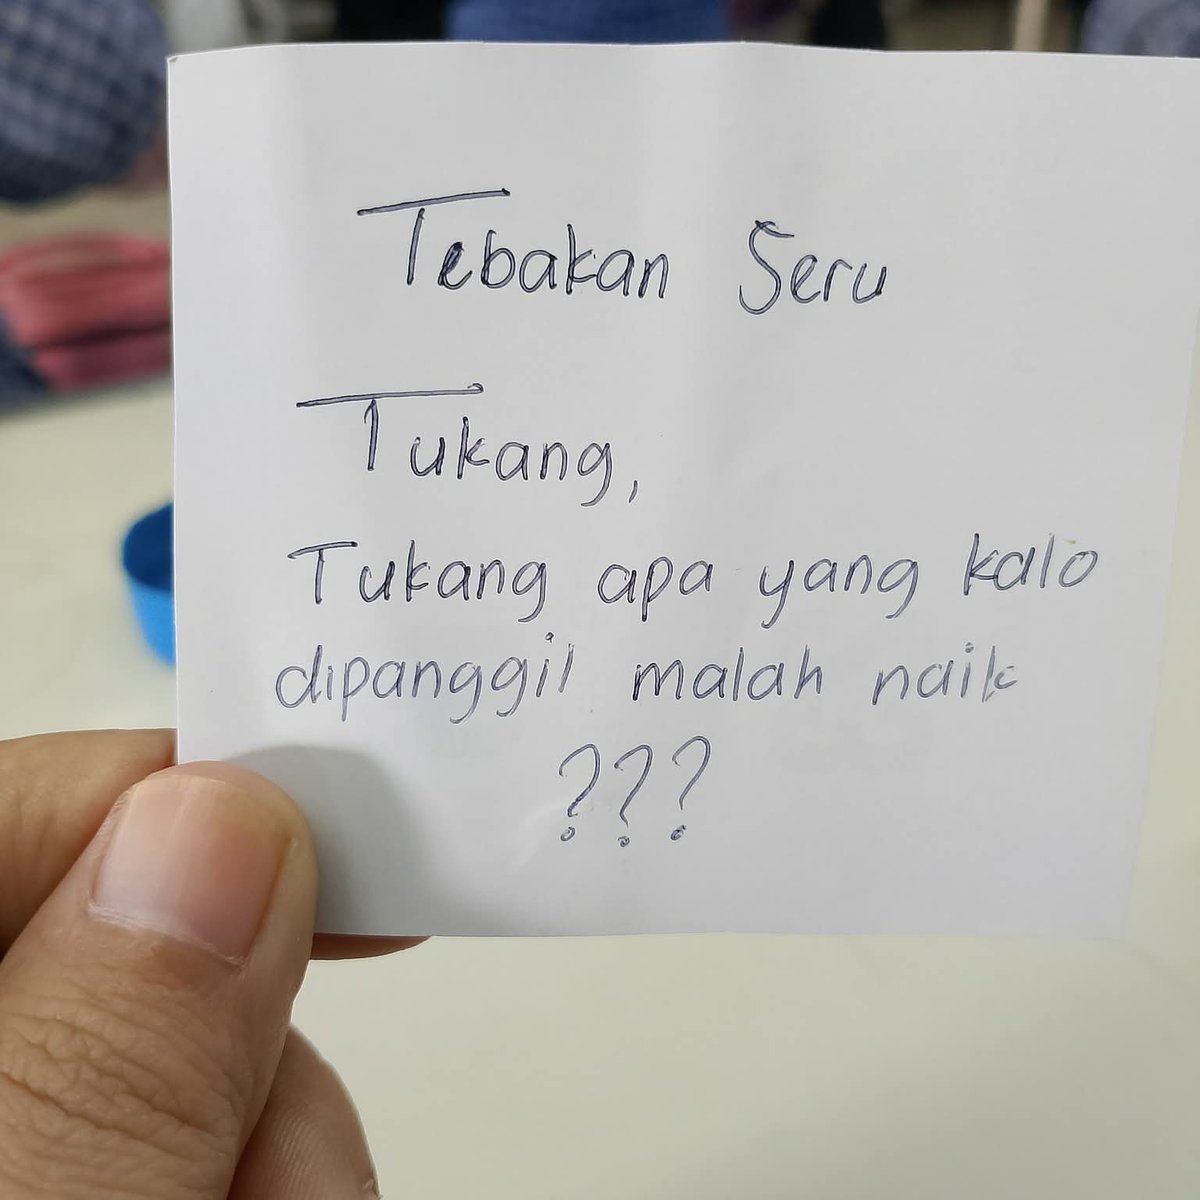 Tebakan Seru
Tukang,
Tukang apa yang kalo
dipanggil malah naik
???